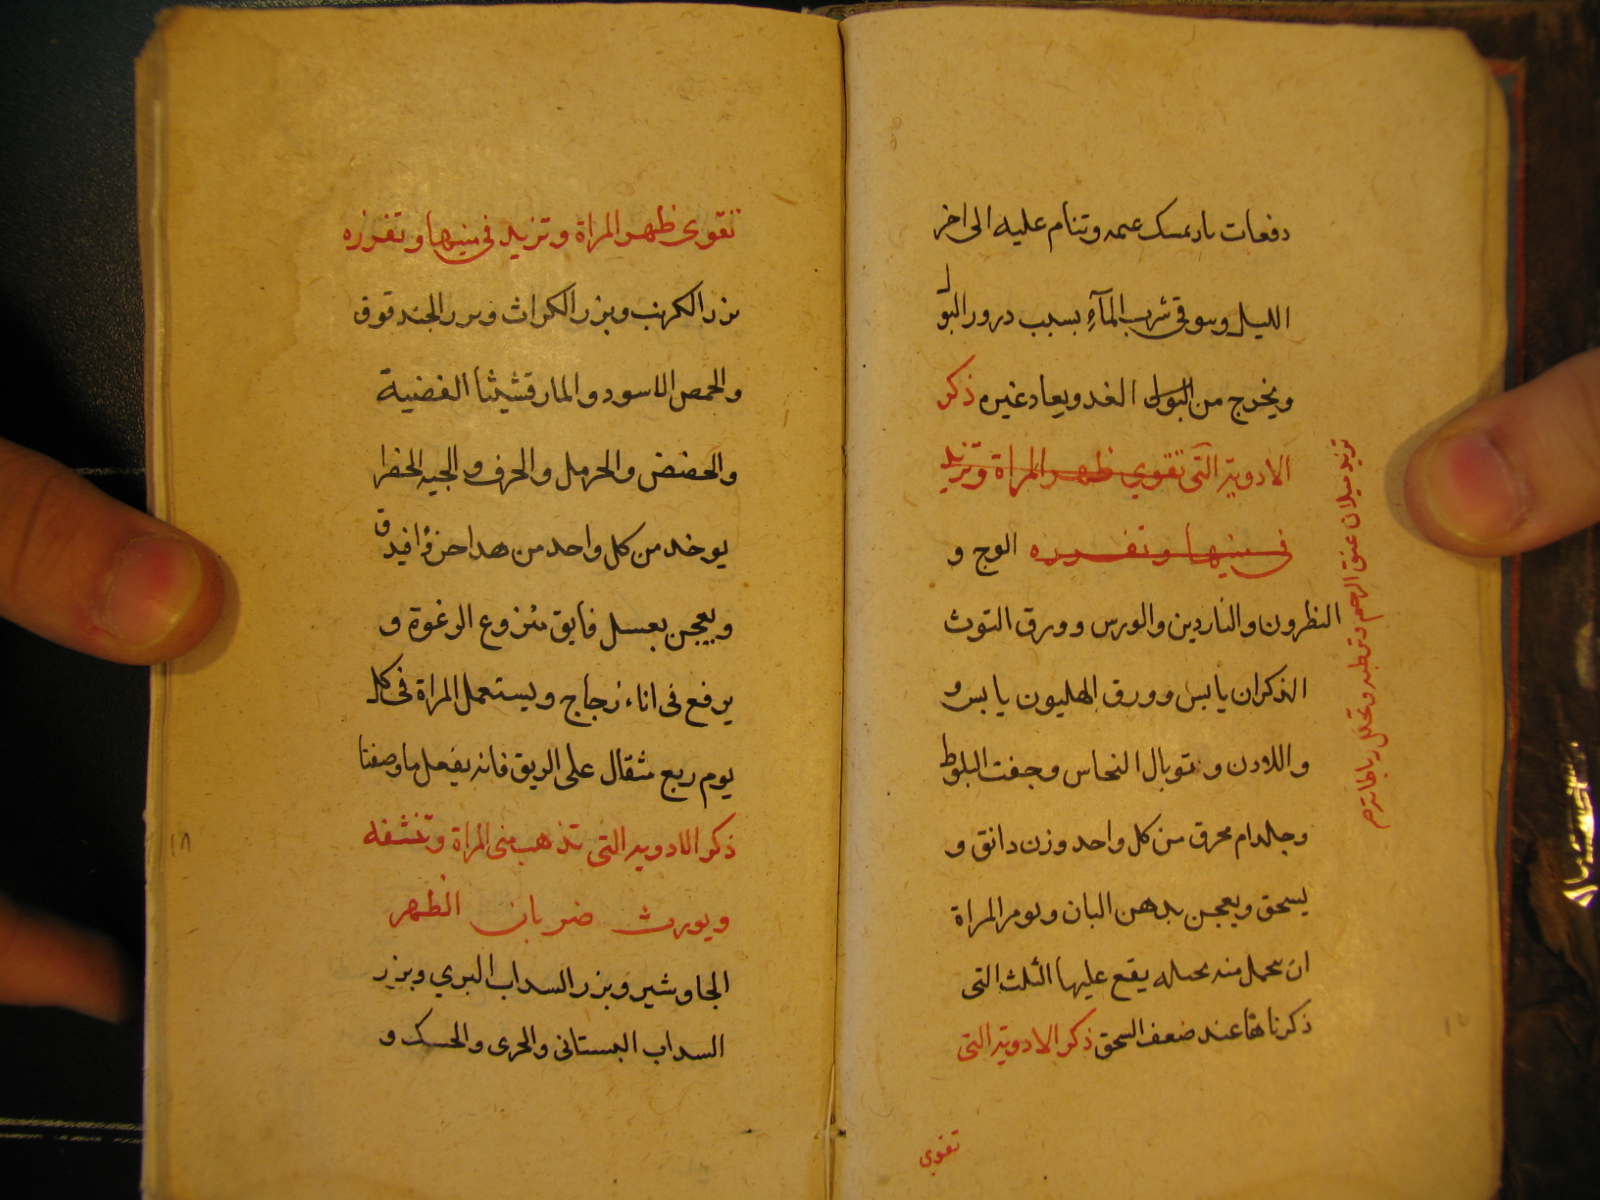 دفعات بارد يمسك عنه وتنام عليه الى اخر
الليل وسوقى شرب المآءِ بسبب درور البول
ويخرج من البول الغد ويعاد غيره ذكر
الادوية التى تقوي ظهر المراة وتزيد
فى منيها وتغزره الوج و
النظرون والناردين والورس وورق التوث
الذكران يابس وورق الهليون يابس و
واللادن وتوبال النحاس وجفت البلوط
وجلدام محرق من كل واحد وزن دانق و
يسحق ويعجن بدهن البان ويومر المراة
ان تتحمل منه يقع عليها الثلث التى
ذكرناها عند ضعف السحق ذكر الادوية التى
تقوي
تزيد ميلان عنق الرحم وترطبه وتحلل
تقوى ظهر المراة وتزيد فى منيها وتغزره
بزر الكرنب وبزر الكراث وبزر الجندقوق
والحمص الاسود والمارقشيثا الفضية
والحضض والحرمل والحرف و الخضرا
يوخذ من كل واحد من هذا جزؤ افيدق
ويعجن بعسل فايق منزوع الرغوة و
يرفع فى اناء زجاج ويستعمل المراة فى كل
يوم ربع مثقال على الريق فانه يفعل ما وصفنا
ذكر الادوية التى تذهب منى المراة وتنشفه
ويورث ضربان الظهر
الجاوشير وبزر السداب البري وبزر
السداب البستانى والحرى والحسك و
١٨